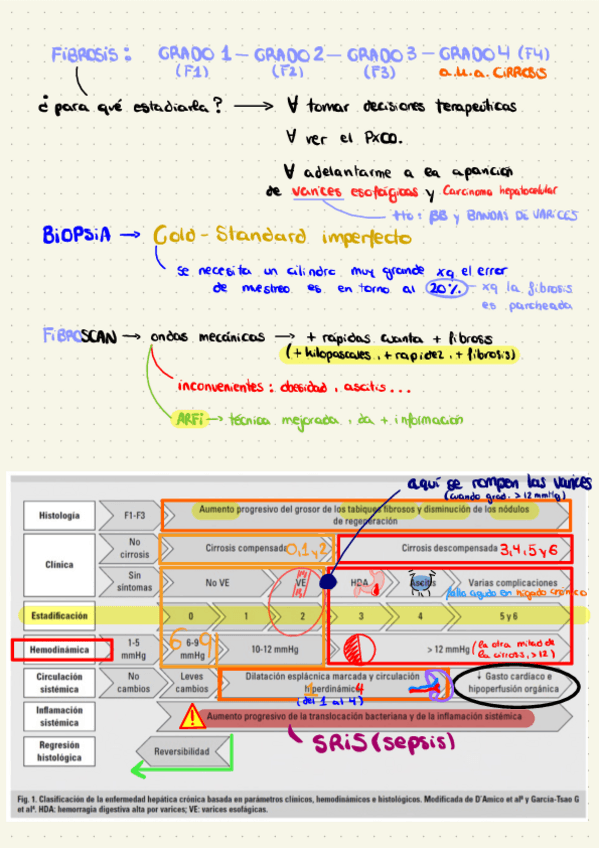 FiBROSIS: GRADO 1 – GRADO 2 – GRADO 3 – GRADO 4 (F4)
(F1) (F2) (F3) a.k.a. CIRROSIS
¿para qué estudiarla? → ∀ tomar decisiones terapeúticas
∀ ver el PxCO.
∀ adelantarme a la aparición
de varices esofágicas y Carcinoma hepatocelular
tto: BB y BANDAS DE VARICES
BiOPSiA → Gold-Standard imperfecto
se necesita un cilindro muy grande xq el error
de muestreo es en torno al 20% – xq la fibrosis
es parcheada
FiBROSCAN → ondas mecánicas → + rápidas cuanta + fibrosis
(+ kilopascales, + rapidez, + fibrosis)
inconvenientes: obesidad, ascitis...
ARFi → técnica mejorada, da + información
aquí se rompen las varices
(cuando grad. > 12 mmHg)
Histología F1-F3 Aumento progresivo del grosor de los tabiques fibrosos y disminución de los nódulos
de regeneración
Clínica No cirrosis Cirrosis compensada 0,1 y 2 Cirrosis descompensada 3, 4, 5 y 6
Sin síntomas No VE VE HDA Ascitis Varias complicaciones
falla agudo en hígado crónico
Estadificación 0 1 2 3 4 5 y 6
Hemodinámica 1-5 mmHg 6-9 mmHg 10-12 mmHg > 12 mmHg (la otra mitad de
6 9 la cirrosis, >12)
Circulación sistémica No cambios Leves cambios Dilatación esplácnica marcada y circulación hiperdinámica ↓ Gasto cardíaco e hipoperfusión orgánica
(del 1 al 4)
Inflamación sistémica Aumento progresivo de la translocación bacteriana y de la inflamación sistémica
SRiS (sepsis)
Regresión histológica Reversibilidad
Fig. 1. Clasificación de la enfermedad hepática crónica basada en parámetros clínicos, hemodinámicos e histológicos. Modificada de D'Amico et al⁸ y García-Tsao G
et al⁹. HDA: hemorragia digestiva alta por varices; VE: varices esofágicas.